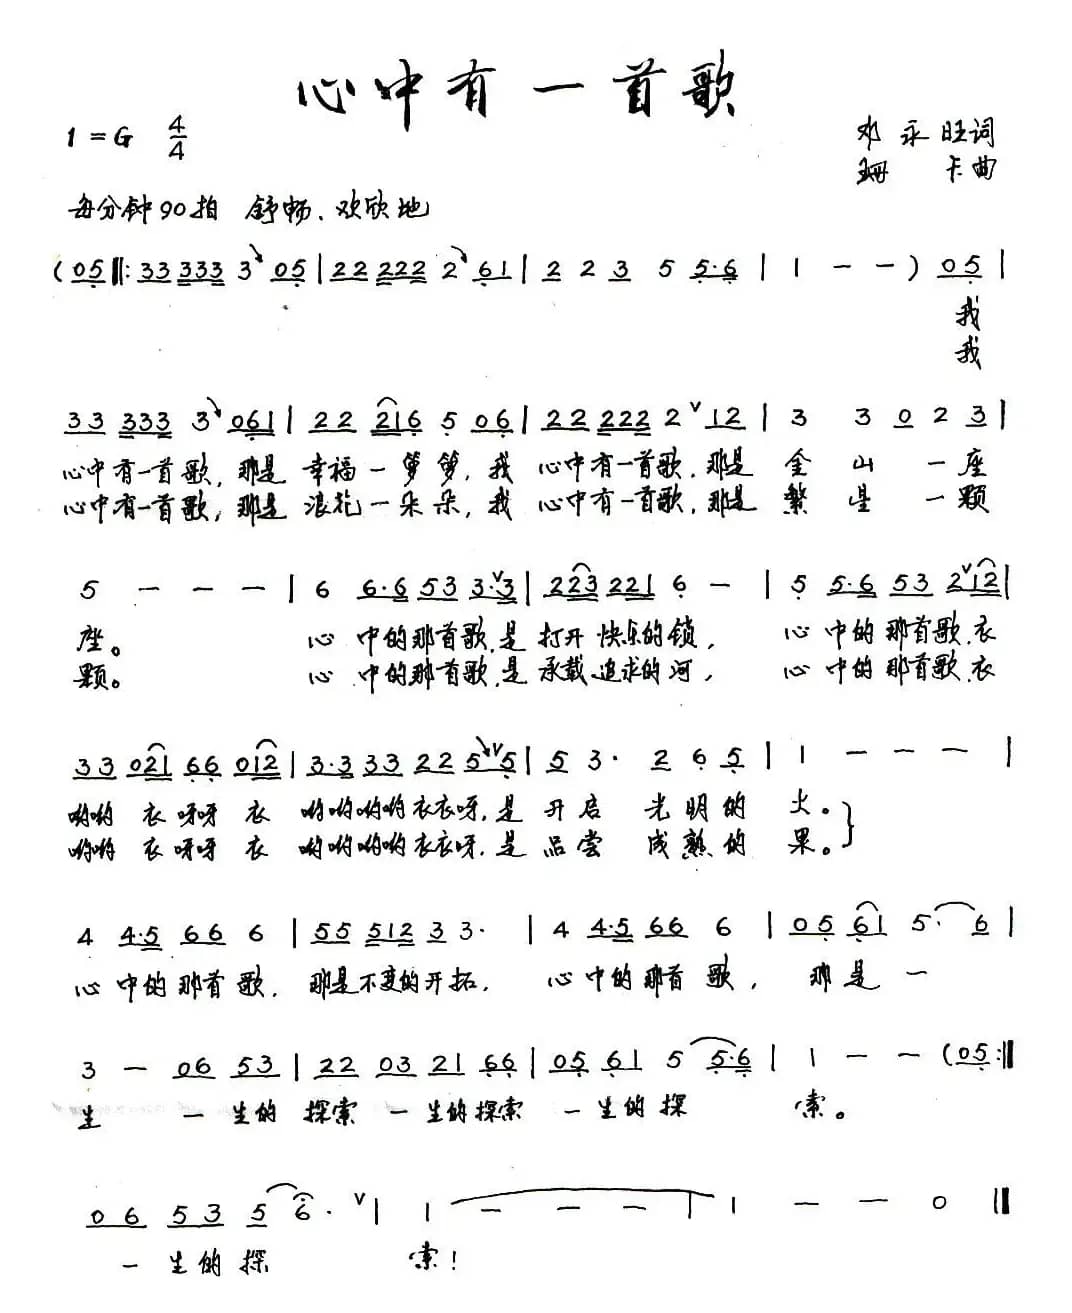 心中有一首歌
1=G 4/4
邓永旺词
珊卡曲
每分钟90拍 舒畅、欢欣地
(05‖:33 333 3 05|22 222 2 61|2 2 3 5 5·6|1 - -) 05|
我
我
33 333 3 061|22 216 5 06|22 222 2 ∨12|3 3 0 2 3|
心中有一首歌,那是 幸福一箩箩,我 心中有一首歌,那是 金山 一座
心中有一首歌,那是 浪花一朵朵,我 心中有一首歌,那是 繁星 一颗
5 - - -|6 6·6 53 3·∨3|223 221 6 -|5 5·6 53 2∨12|
座。 心 中的那首歌,是 打开快乐的锁, 心 中的那首歌,衣
颗。 心 中的那首歌,是 承载追求的河, 心 中的那首歌,衣
33 021 66 012|3·3 33 22 5∨5|5 3· 2 6 5|1 - - -|
哟哟 衣呀呀 衣 哟哟哟哟衣衣呀,是 开启 光明的 火。}
哟哟 衣呀呀 衣 哟哟哟哟衣衣呀,是 品尝 成熟的 果。}
4 4·5 66 6|55 512 3 3·|4 4·5 66 6|05 61 5· 6|
心 中的那首歌, 那是不变的开拓, 心 中的那首歌, 那是 一
3 - 06 53|22 03 21 66|05 61 5 5·6|1 - - (05:‖
生 一生的 探索 一生的探索 一生的探 索。
06 53 5 6· ∨|1 - - -|1 - - 0‖
一生的探 索!